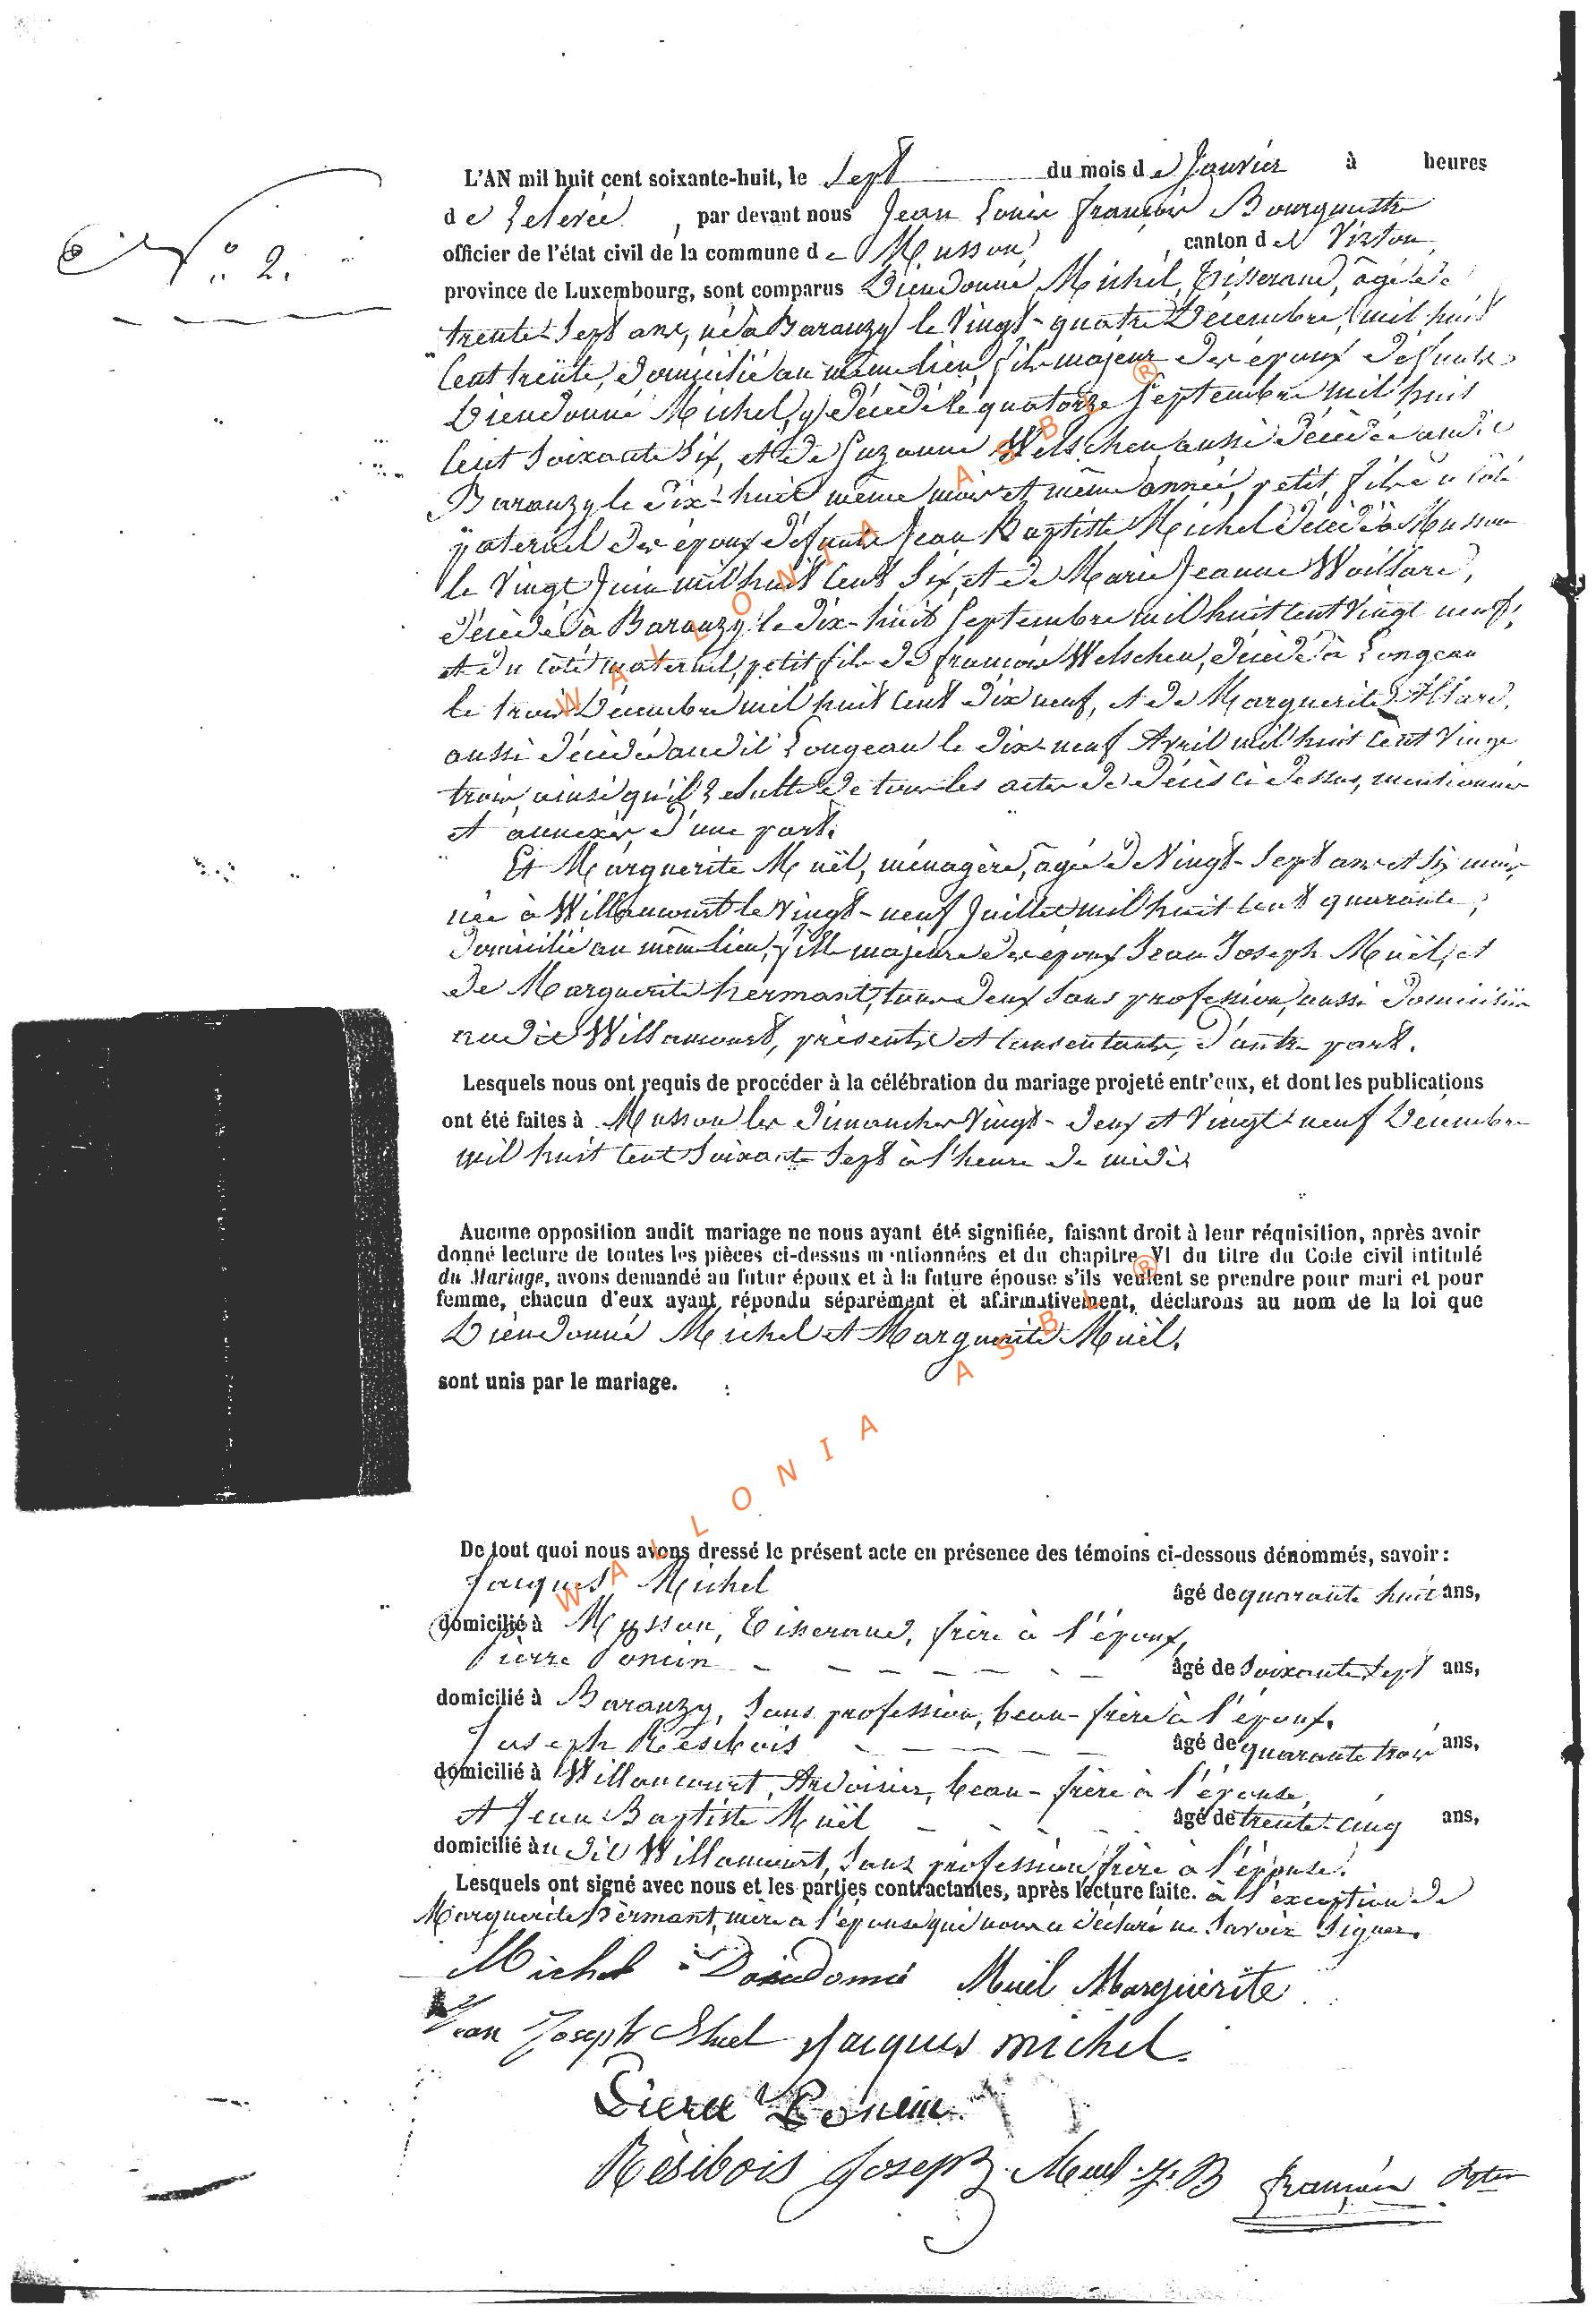 N° 2.
L'AN mil huit cent soixante-huit, le Sept du mois de Janvier à heures
de relevée, par devant nous Jean Louis François Bourgmestre
officier de l'état civil de la commune de Musson, canton de Virton,
province de Luxembourg, sont comparus Dieudonné Michel, Tisserand, âgé de
trente-Sept ans, né à Baranzy le Vingt-quatre Décembre mil huit
Cent trente, domicilié au même lieu, fils majeur des époux défunts
Dieudonné Michel, y décédé le quatorze Septembre mil huit
Cent Soixante Six, et de Suzanne Welschen, aussi décédée audit
Baranzy le dix-huit même mois et même année, petit fils du côté
paternel des époux défunts Jean Baptiste Michel décédé à Musson
le Vingt Juin mil huit Cent Six, et de Marie Jeanne Waillard,
décédée à Baranzy le dix-huit Septembre mil huit cent Vingt neuf,
et du côté maternel, petit fils de François Welschen, décédé à Longeau
le trois Décembre mil huit cent dix neuf, et de Marguerite Allard,
aussi décédée audit Longeau le dix-neuf Avril mil huit cent Vingt
trois, ainsi qu'il résulte de tous les actes de décès ci dessus, mentionnés
et annexés, d'une part.
Et Marguerite Muël, ménagère, âgée de Vingt-Sept ans et Six mois,
née à Willancourt le Vingt-neuf Juillet mil huit cent quarante,
domicilié au même lieu, fille majeure des époux Jean Joseph Muël, et
de Marguerite hermant, tous deux Sans profession, aussi domiciliés
audit Willancourt, présents et Consentants, d'autre part.
Lesquels nous ont requis de procéder à la célébration du mariage projeté entr'eux, et dont les publications
ont été faites à Musson les dimanches Vingt-deux et Vingt-neuf Décembre
mil huit Cent Soixante Sept à l'heure de midi
Aucune opposition audit mariage ne nous ayant été signifiée, faisant droit à leur réquisition, après avoir
donné lecture de toutes les pièces ci-dessus mentionnées et du chapitre VI du titre du Code civil intitulé
du Mariage, avons demandé au futur époux et à la future épouse s'ils veulent se prendre pour mari et pour
femme, chacun d'eux ayant répondu séparément et affirmativement, déclarons au nom de la loi que
Dieudonné Michel et Marguerite Muël,
sont unis par le mariage.
De tout quoi nous avons dressé le présent acte en présence des témoins ci-dessous dénommés, savoir :
Jacques Michel âgé de quarante huit ans,
domicilié à Musson, Tisserand, frère à l'époux,
Pierre Poncin âgé de Soixante Sept ans,
domicilié à Baranzy, Sans profession, beau-frère à l'époux,
Joseph Résibois âgé de quarante trois ans,
domicilié à Willancourt, Ardoisier, beau-frère à l'épouse,
et Jean Baptiste Muël âgé de trente-cinq ans,
domicilié audit Willancourt, Sans profession, frère à l'épouse.
Lesquels ont signé avec nous et les parties contractantes, après lecture faite. à l'exception de
Marguerite hermant, mère à l'épouse qui nous a déclaré ne Savoir Signer.
Michel Dieudonné Muël Marguérite
Jean Joseph Muel Jacques michel
Piere Poncin
Résibois Joseph Muel J. B François
WALLONIA ASBL ®
WALLONIA ASBL ®